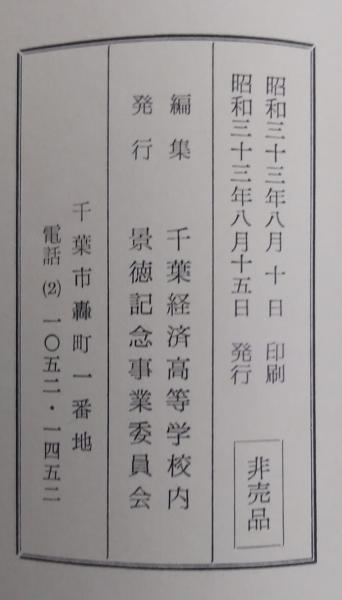 昭和三十三年八月十日 印刷
昭和三十三年八月十五日 発行
非売品
編集 千葉経済高等学校内
発行 景徳記念事業委員会
千葉市轟町一番地
電話(2)一〇五二・一四五二